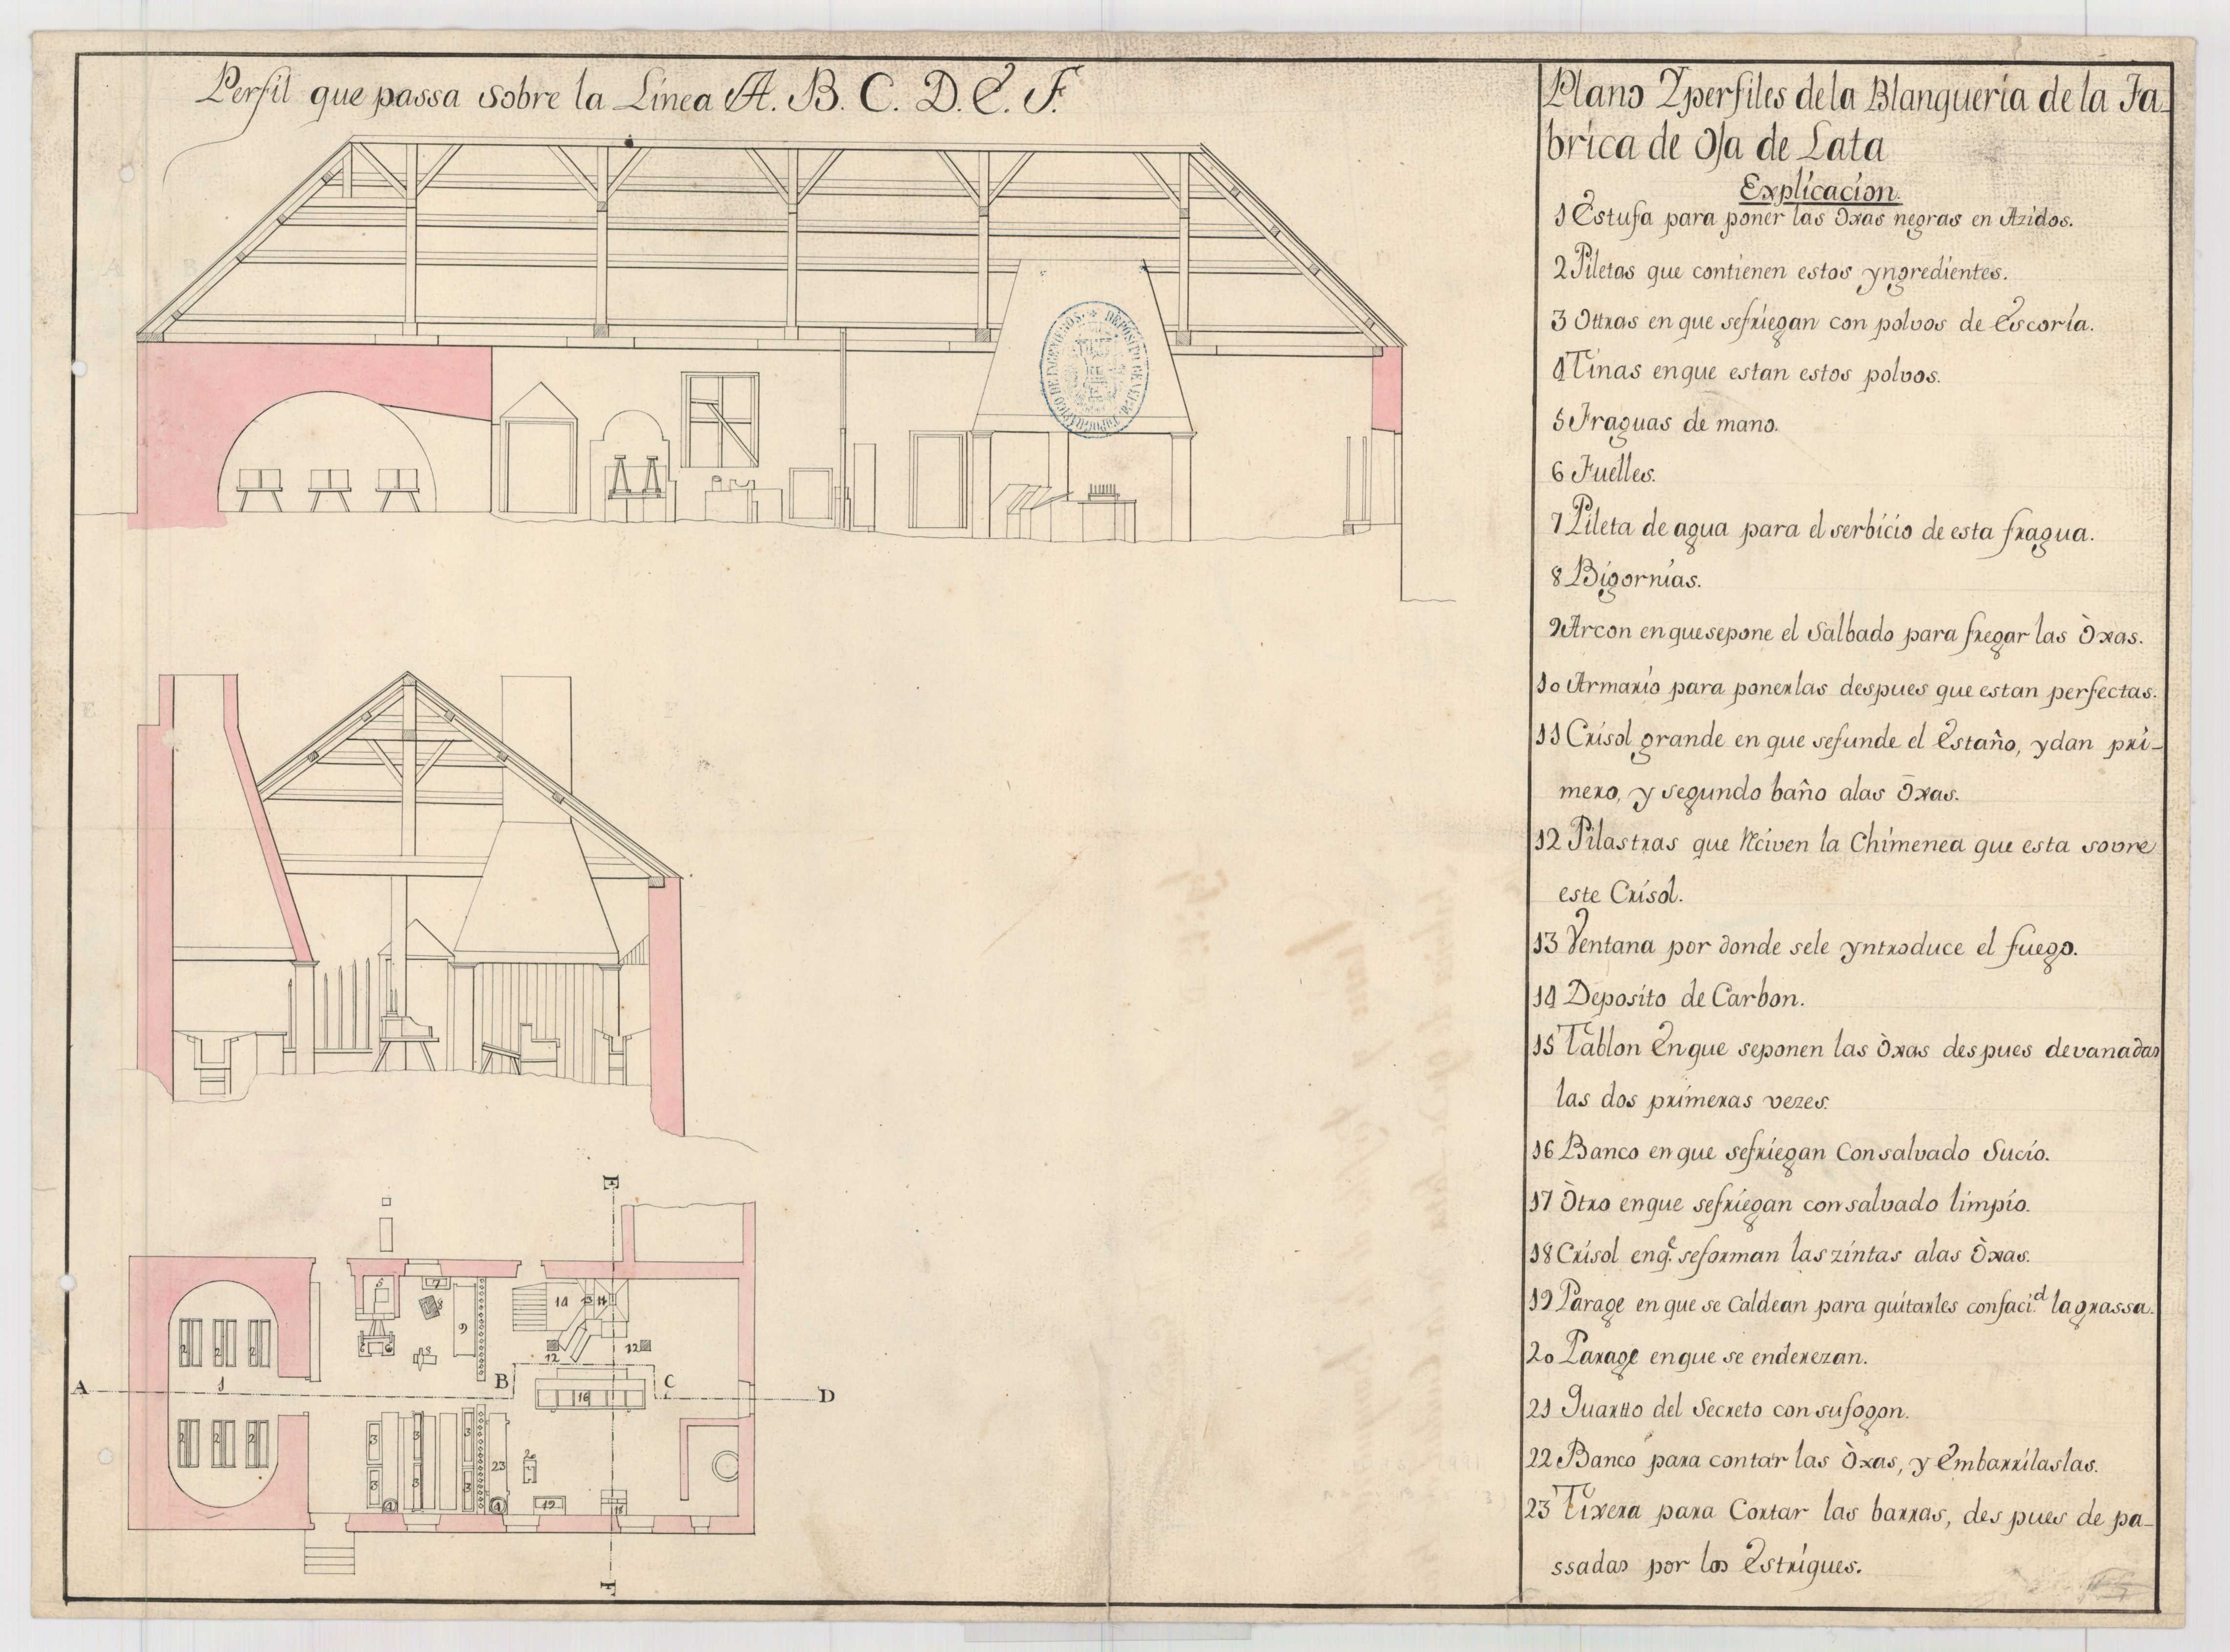 Perfil que passa sobre la Linea A. B. C. D. E. F.
Plano Yperfiles dela Blanqueria de la Fa-
brica de Oja de Lata
Explicacion.
1 Estufa para poner las Oxas negras en Azidos.
2 Piletas que contienen estos yngredientes.
3 Ottras en que sefriegan con polvos de Escoria.
4 Tinas enque estan estos polvos.
5 Fraguas de mano.
6 Fuelles.
7 Pileta de agua para el serbicio de esta fragua.
8 Bigornias.
9 Arcon en quesepone el Salbado para fregar las Òxas.
10 Armario para ponerlas despues que estan perfectas.
11 Crisol grande en que sefunde el Estaño, ydan pri-
mero, y segundo baño alas Oxas.
12 Pilastras que Reciven la Chimenea que esta sovre
este Crisol.
13 Ventana por donde sele yntroduce el fuego.
14 Deposito de Carbon.
15 Tablon Enque seponen las Òxas des pues devanadas
las dos primeras vezes.
16 Banco en que sefriegan Consalvado Sucio.
17 Òtro enque sefriegan consalvado limpio.
18 Crisol enq.e seforman las zintas alas Òxas.
19 Parage en que se Caldean para quitarles confaci.d la grassa.
20 Parage enque se enderezan.
21 Quartto del Secreto con sufogon.
22 Banco para contar las Òxas, y Embarrilaslas.
23 Tixera para Cortar las barras, des pues de pa-
ssadas por los Estrigues.
E
5
7
8
9
14
11
12
12
6
8
2 2 2
1
A
B
C
D
16
2 2 2
3
3
3
3
3
3
4
4
23
20
19
18
F